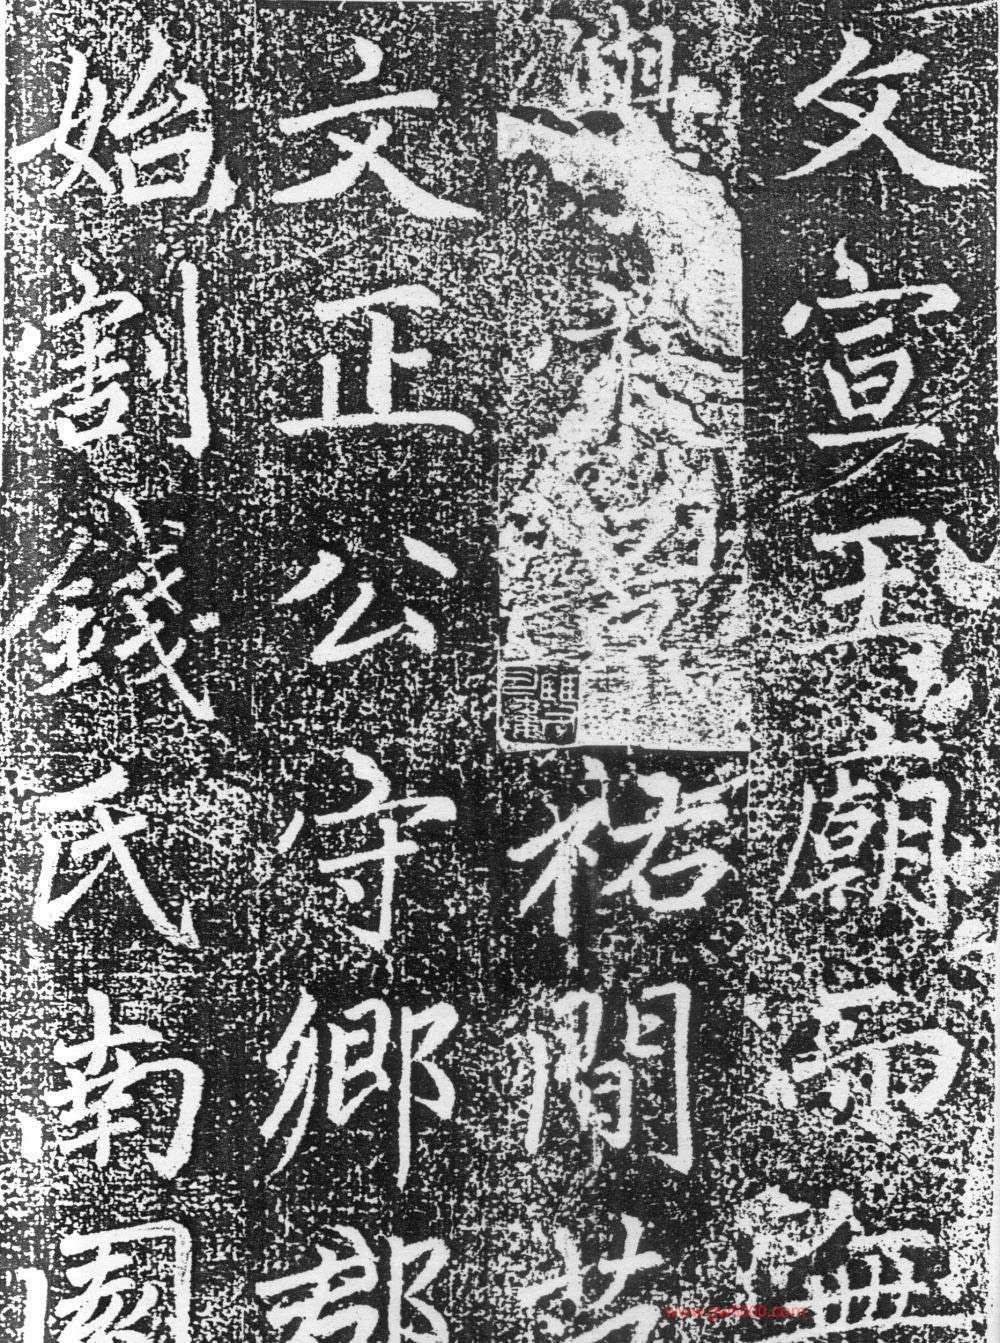 文宣王廟而無
祐間
文正公守鄉郡
始割錢氏南園
www.gsr5000.com